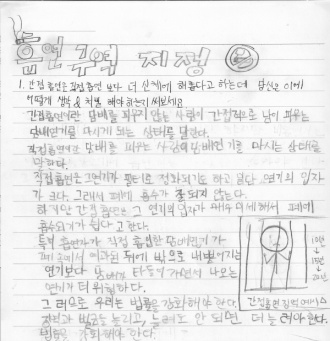 흡연 구역 지정
1. 간접 흡연은 직접 흡연 보다 더 신체에 해롭다고 하는데 당신은 이에
어떻게 생각 & 처벌 해야 하는지 써보세요
간접흡연이란 담배를 피우지 않는 사람이 간접적으로 남이 피우는
담배연기를 마시게 되는 상태를 말한다.
직접흡연이란 담배를 피우는 사람이 담배연기를 마시는 상태를
말한다.
직접흡연은 그 연기가 필터로 정화되기는 하고 일단 연기의 입자
가 크다. 그래서 폐에 흡수가 잘 되지 않는다.
하지만 간접 흡연은 그 연기의 입자가 매우 미세해서 폐에
흡수되기가 쉽다고 한다.
특히 흡연자가 직접 흡입한 담배연기가
폐 에서 여과된 뒤에 밖으로 내뱉어지는
연기보다 담배가 타들어 가면서 나오는
연기가 더 위험하다.
그러므로 우리는 법률을 강화해야 한다.
징역과 벌금을 늘리고, 늘려도 안 되면 더 늘려야 한다.
법률을 강화해야 한다.
10만
15만
20만
간접흡연 징역